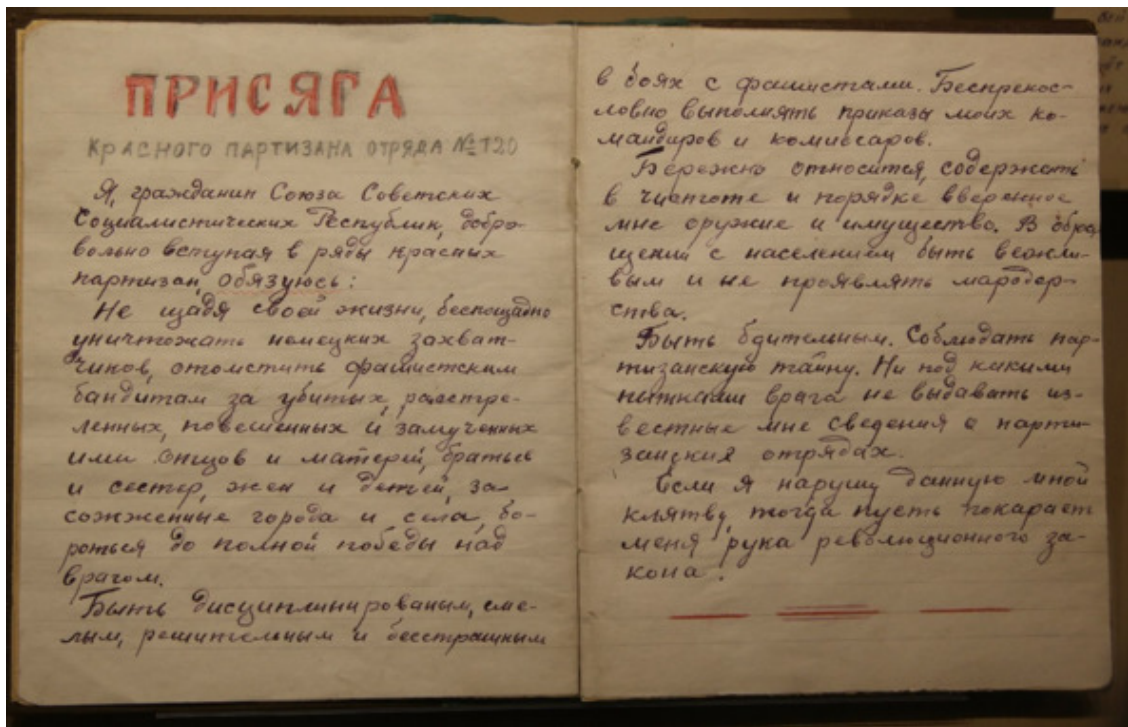 ПРИСЯГА
КРАСНОГО ПАРТИЗАНА ОТРЯДА № 120
Я, гражданин Союза Советских
Социалистических Республик, добро-
вольно вступая в ряды красных
партизан, обязуюсь:
Не щадя своей жизни, беспощадно
уничтожать немецких захват-
чиков, отомстить фашистским
бандитам за убитых, расстре-
ленных, повешенных и замученных
ими отцов и матерей, братьев
и сестер, жен и детей, за
сожженные города и села, бо-
роться до полной победы над
врагом.
Быть дисциплинированым, сме-
лым, решительным и бесстрашным
в боях с фашистами. Беспрекос-
ловно выполнять приказы моих ко-
мандиров и комиссаров.
Бережно относится, содержать
в чистоте и порядке вверенное
мне оружие и имущество. В обра-
щении с населением быть вежли-
вым и не проявлять мародер-
ства.
Быть бдительным. Соблюдать пар-
тизанскую тайну. Ни под какими
пытками врага не выдавать из-
вестные мне сведения о парти-
занских отрядах.
Если я нарушу данную мной
клятву, тогда пусть покарает
меня рука революционного за-
кона.